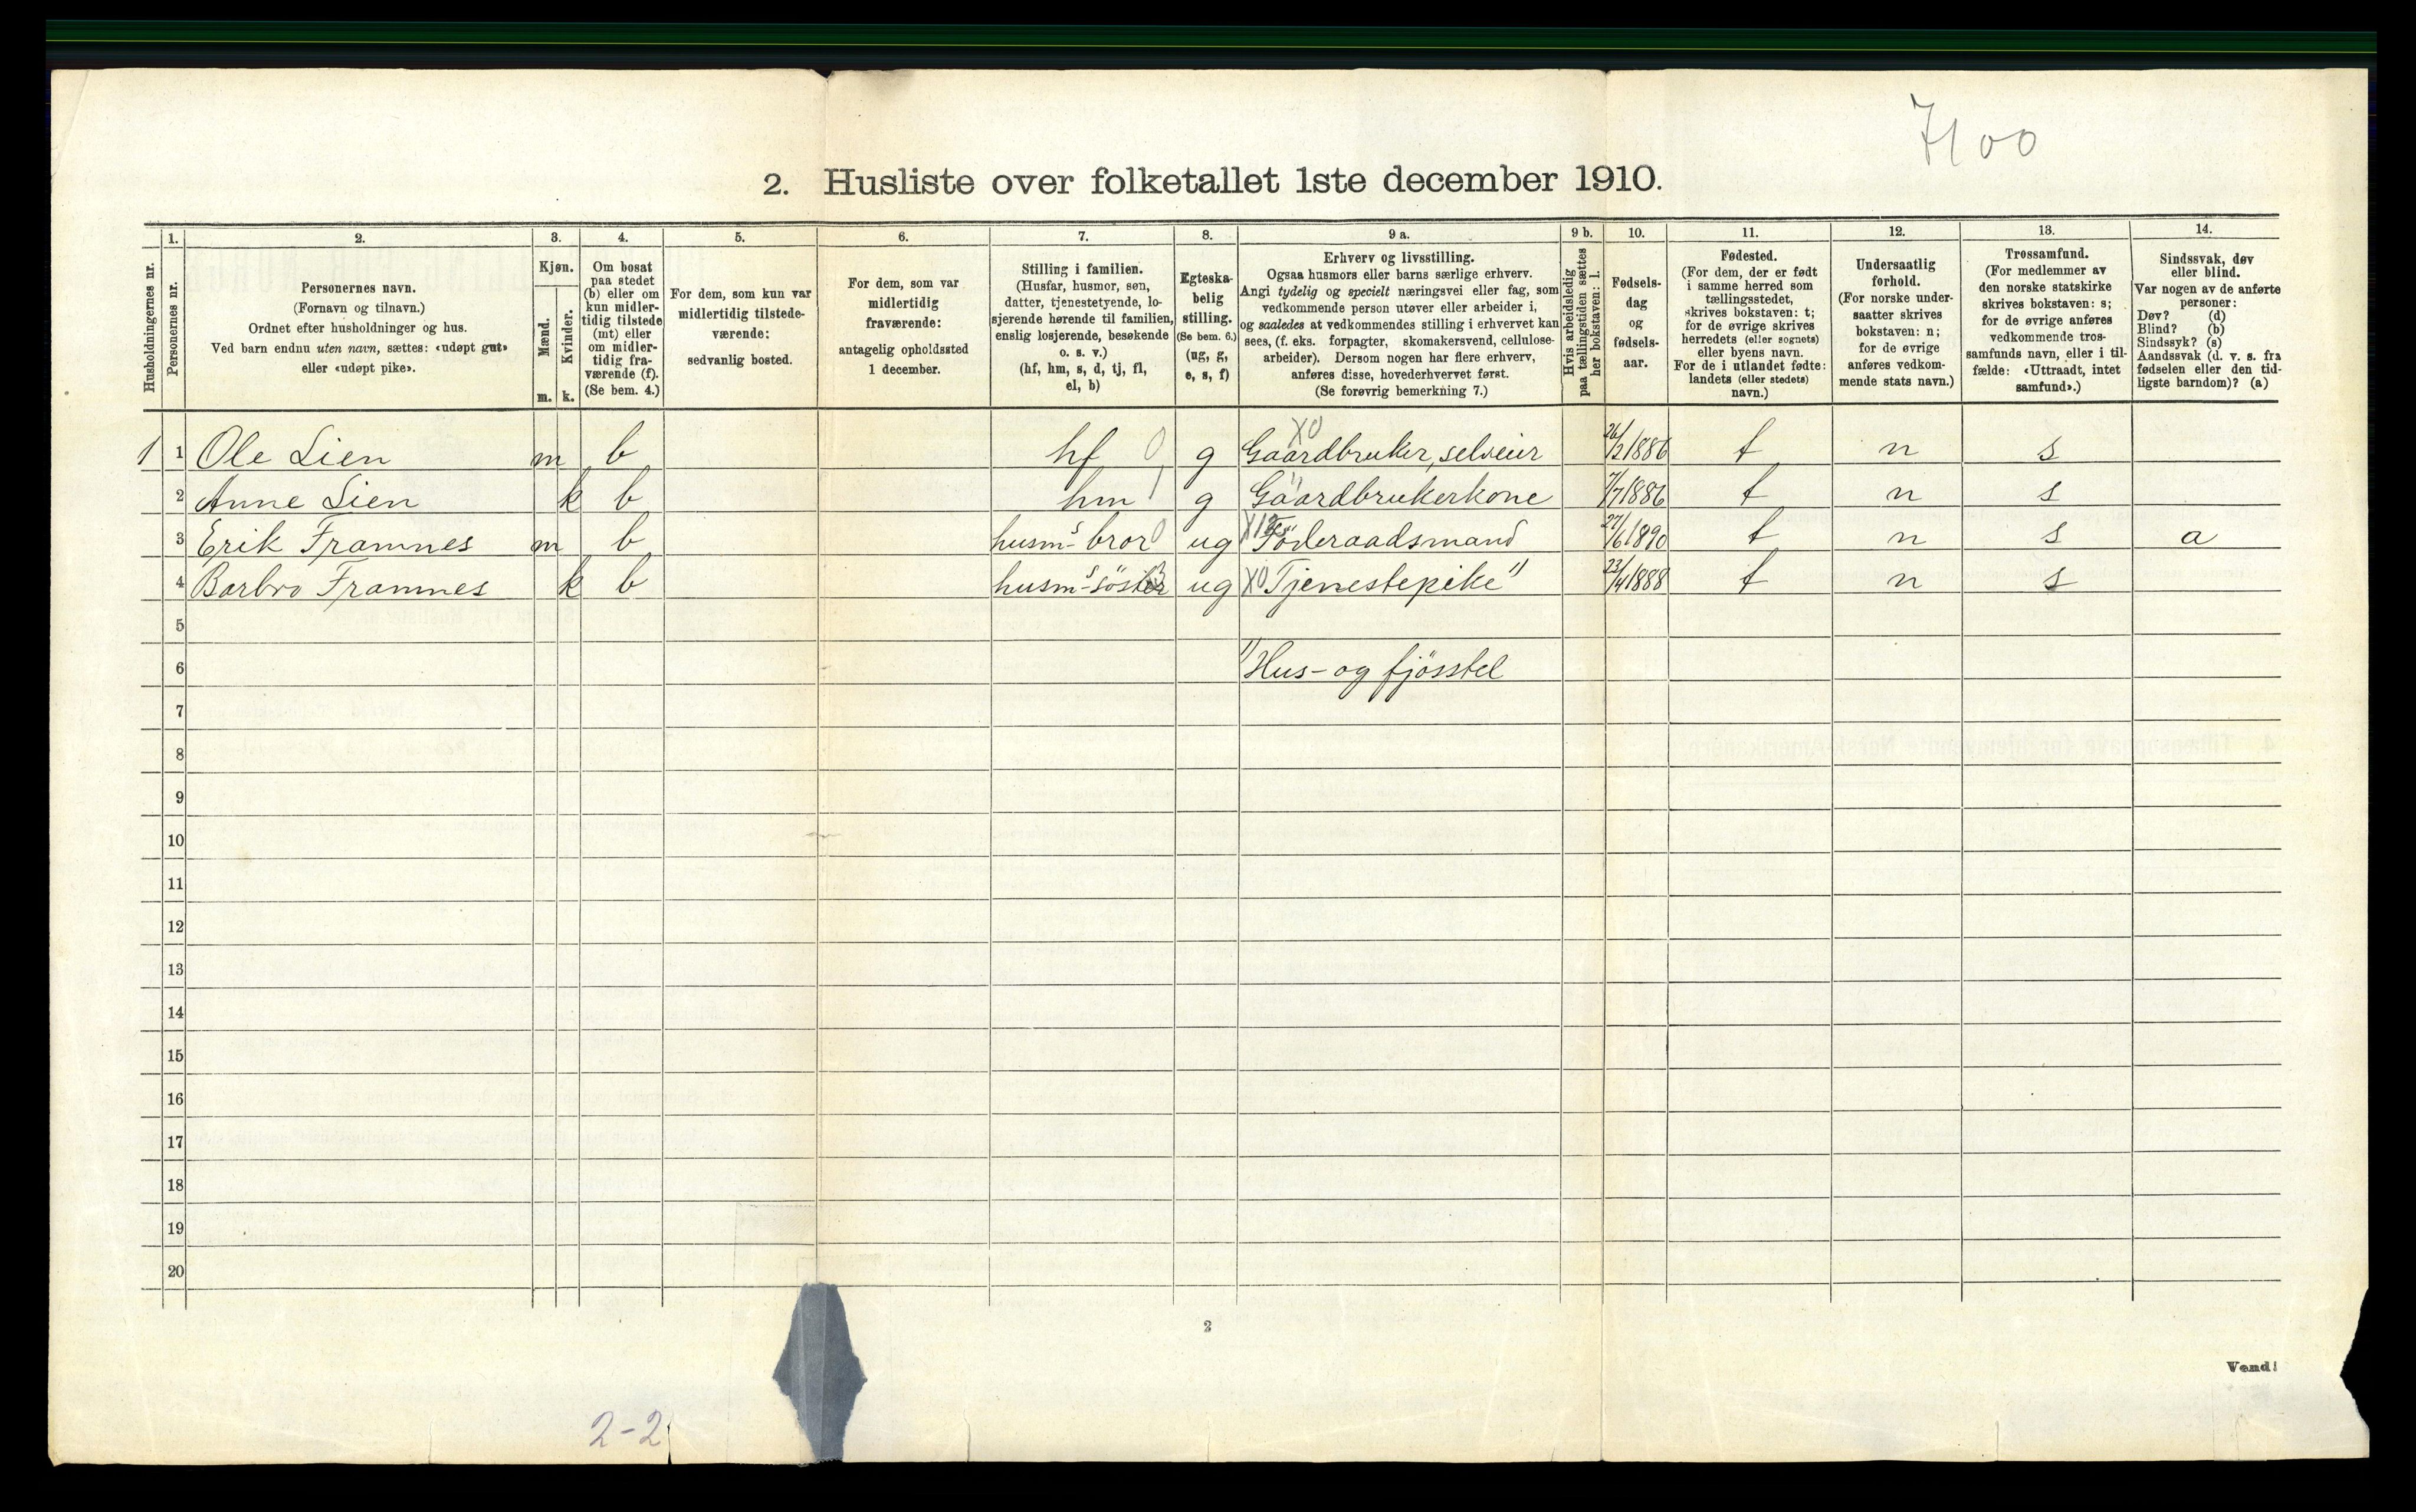 7100
2. Husliste over folketallet 1ste december 1910.
Husholdningernes nr.
1. Personernes nr.
2. Personernes navn.
(Fornavn og tilnavn.)
Ordnet efter husholdninger og hus.
Ved barn endnu uten navn, sættes: «udøpt gut»
eller «udøpt pike».
3. Kjøn.
Mænd. Kvinder.
m. k.
4. Om bosat
paa stedet
(b) eller om
kun midler-
tidig tilstede
(mt) eller
om midler-
tidig fra-
værende (f).
(Se bem. 4.)
5. For dem, som kun var
midlertidig tilstede-
værende:
sedvanlig bosted.
6. For dem, som var
midlertidig
fraværende:
antagelig opholdssted
1 december.
7. Stilling i familien.
(Husfar, husmor, søn,
datter, tjenestetyende, lo-
sjerende hørende til familien,
enslig losjerende, besøkende
o. s. v.)
(hf, hm, s, d, tj, fl,
el, b)
8. Egteska-
belig
stilling.
(Se bem. 6.)
(ug, g,
e, s, f)
9 a. Erhverv og livsstilling.
Ogsaa husmors eller barns særlige erhverv.
Angi tydelig og specielt næringsvei eller fag, som
vedkommende person utøver eller arbeider i,
og saaledes at vedkommendes stilling i erhvervet kan
sees, (f. eks. forpagter, skomakersvend, cellulose-
arbeider). Dersom nogen har flere erhverv,
anføres disse, hovederhvervet først.
(Se forøvrig bemerkning 7.)
9 b. Hvis arbeidsledig
paa tællingstiden sættes
her bokstaven: l.
10. Fødsels-
dag
og
fødsels-
aar.
11. Fødested.
(For dem, der er født
i samme herred som
tællingsstedet,
skrives bokstaven: t;
for de øvrige skrives
herredets (eller sognets)
eller byens navn.
For de i utlandet fødte:
landets (eller stedets)
navn.)
12. Undersaatlig
forhold.
(For norske under-
saatter skrives
bokstaven: n;
for de øvrige
anføres vedkom-
mende stats navn.)
13. Trossamfund.
(For medlemmer av
den norske statskirke
skrives bokstaven: s;
for de øvrige anføres
vedkommende tros-
samfunds navn, eller i til-
fælde: «Uttraadt, intet
samfund».)
14. Sindssvak, døv
eller blind.
Var nogen av de anførte
personer:
Døv? (d)
Blind? (b)
Sindssyk? (s)
Aandssvak (d. v. s. fra
fødselen eller den tid-
ligste barndom)? (a)
1 1 Ole Lien m b hf 0 g X0 Gaardbruker, selveier 26/2 1886 t n s
2 Anne Lien k b hm 1 g Gaardbrukerkone 1) 7/7 1886 t n s
3 Erik Framnes m b husm-s bror 0 ug Föderaadsmand 27/6 1890 t n s a
4 Barbro Framnes k b husm-s söster ug X0 Tjenestepike 1) 23/4 1888 t n s
5
6 1) Hus- og fjösstel
7
8
9
10
11
12
13
14
15
16
17
18
19
20
2
Vend!
2-2